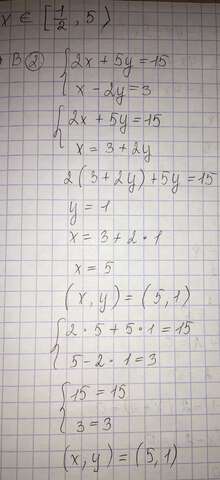 x ∈ [1/2, 5)
B ② { 2x + 5y = 15
x - 2y = 3
{ 2x + 5y = 15
x = 3 + 2y
2(3 + 2y) + 5y = 15
y = 1
x = 3 + 2 · 1
x = 5
(x, y) = (5, 1)
{ 2 · 5 + 5 · 1 = 15
5 - 2 · 1 = 3
{ 15 = 15
3 = 3
(x, y) = (5, 1)